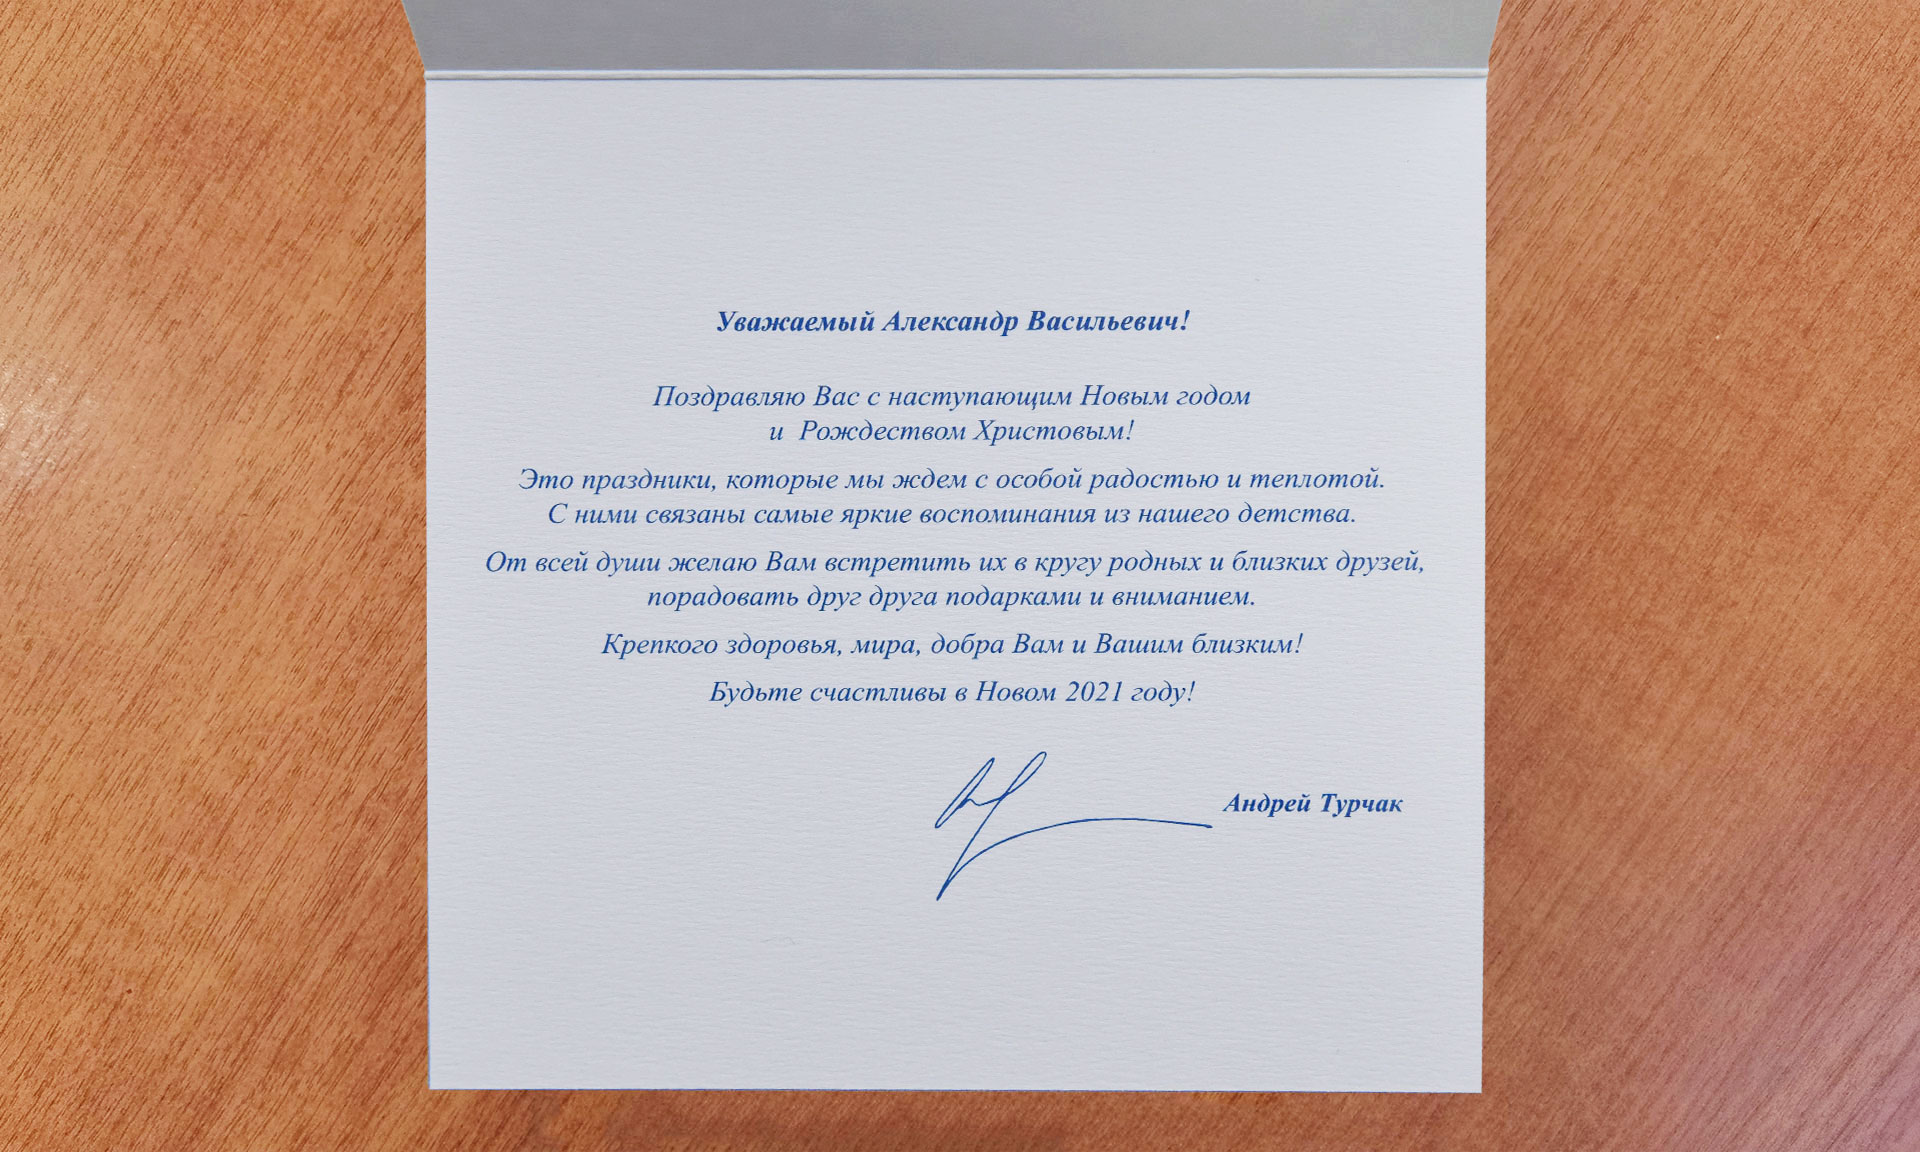 Уважаемый Александр Васильевич!
Поздравляю Вас с наступающим Новым годом
и Рождеством Христовым!
Это праздники, которые мы ждем с особой радостью и теплотой.
С ними связаны самые яркие воспоминания из нашего детства.
От всей души желаю Вам встретить их в кругу родных и близких друзей,
порадовать друг друга подарками и вниманием.
Крепкого здоровья, мира, добра Вам и Вашим близким!
Будьте счастливы в Новом 2021 году!
Андрей Турчак